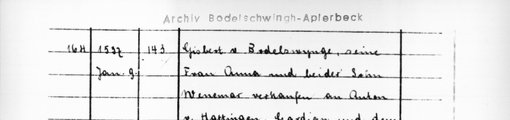 Archiv Bodelschwingh-Apierbeck
164 1537 143 Gisbert v. Bodelswynge, seine
Jan. 9. Frau Anna und beider Sohn
Wenemar verkaufen an Anton
v. Hattingen, Gardian und dem